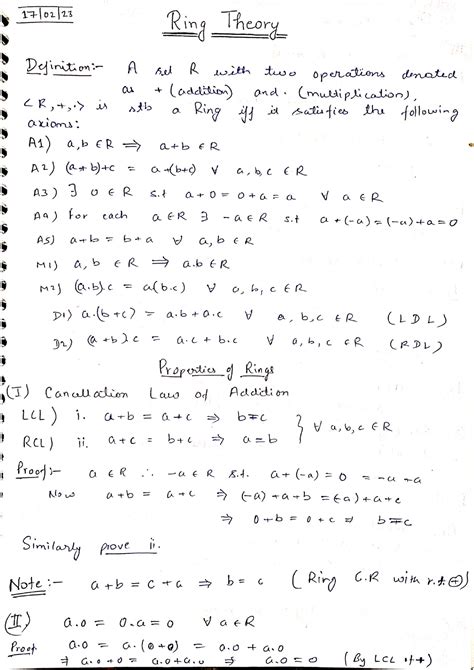 17/02/23
Ring Theory
Definition:- A set R with two operations denoted
as + (addition) and · (multiplication),
<R, +, ·> is stb a Ring iff it satisfies the following
axioms:
A1) a, b ∈ R ⇒ a+b ∈ R
A2) (a+b)+c = a+(b+c) ∀ a, b, c ∈ R
A3) ∃ 0 ∈ R s.t a+0 = 0+a = a ∀ a ∈ R
A4) for each a ∈ R ∃ -a ∈ R s.t a+(-a) = (-a)+a = 0
A5) a+b = b+a ∀ a, b ∈ R
M1) a, b ∈ R ⇒ a.b ∈ R
M2) (a.b).c = a(b.c) ∀ a, b, c ∈ R
D1) a.(b+c) = a.b + a.c ∀ a, b, c ∈ R (LDL)
D2) (a+b)c = a.c + b.c ∀ a, b, c ∈ R (RDL)
Properties of Rings
(I) Cancellation Law of Addition
LCL) i. a+b = a+c ⇒ b=c
RCL) ii. a+c = b+c ⇒ a=b } ∀ a, b, c ∈ R
Proof:- a ∈ R ∴ -a ∈ R s.t. a+(-a) = 0 = -a+a
Now a+b = a+c ⇒ (-a)+a+b = (-a)+a+c
⇒ 0+b = 0+c ⇒ b=c
Similarly prove ii.
Note:- a+b = c+a ⇒ b = c (Ring C.R with r.t (+))
(II) a.0 = 0.a = 0 ∀ a ∈ R
Proof a.0 = a.(0+0) = a.0 + a.0
⇒ a.0 + 0 = a.0 + a.0 ⇒ a.0 = 0 (By LCL of +)